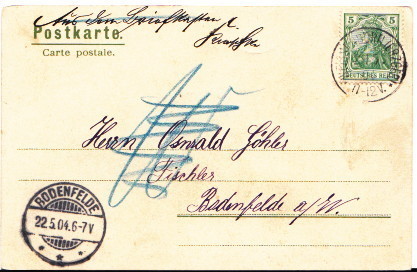 Aus dem Briefkasten
Postkarte.
Carte postale.
5 5
DEUTSCHES REICH
11-12V.
Herrn Oswald Göhler
Tischler
Bodenfelde a/W.
BODENFELDE
22.5.04.6-7V